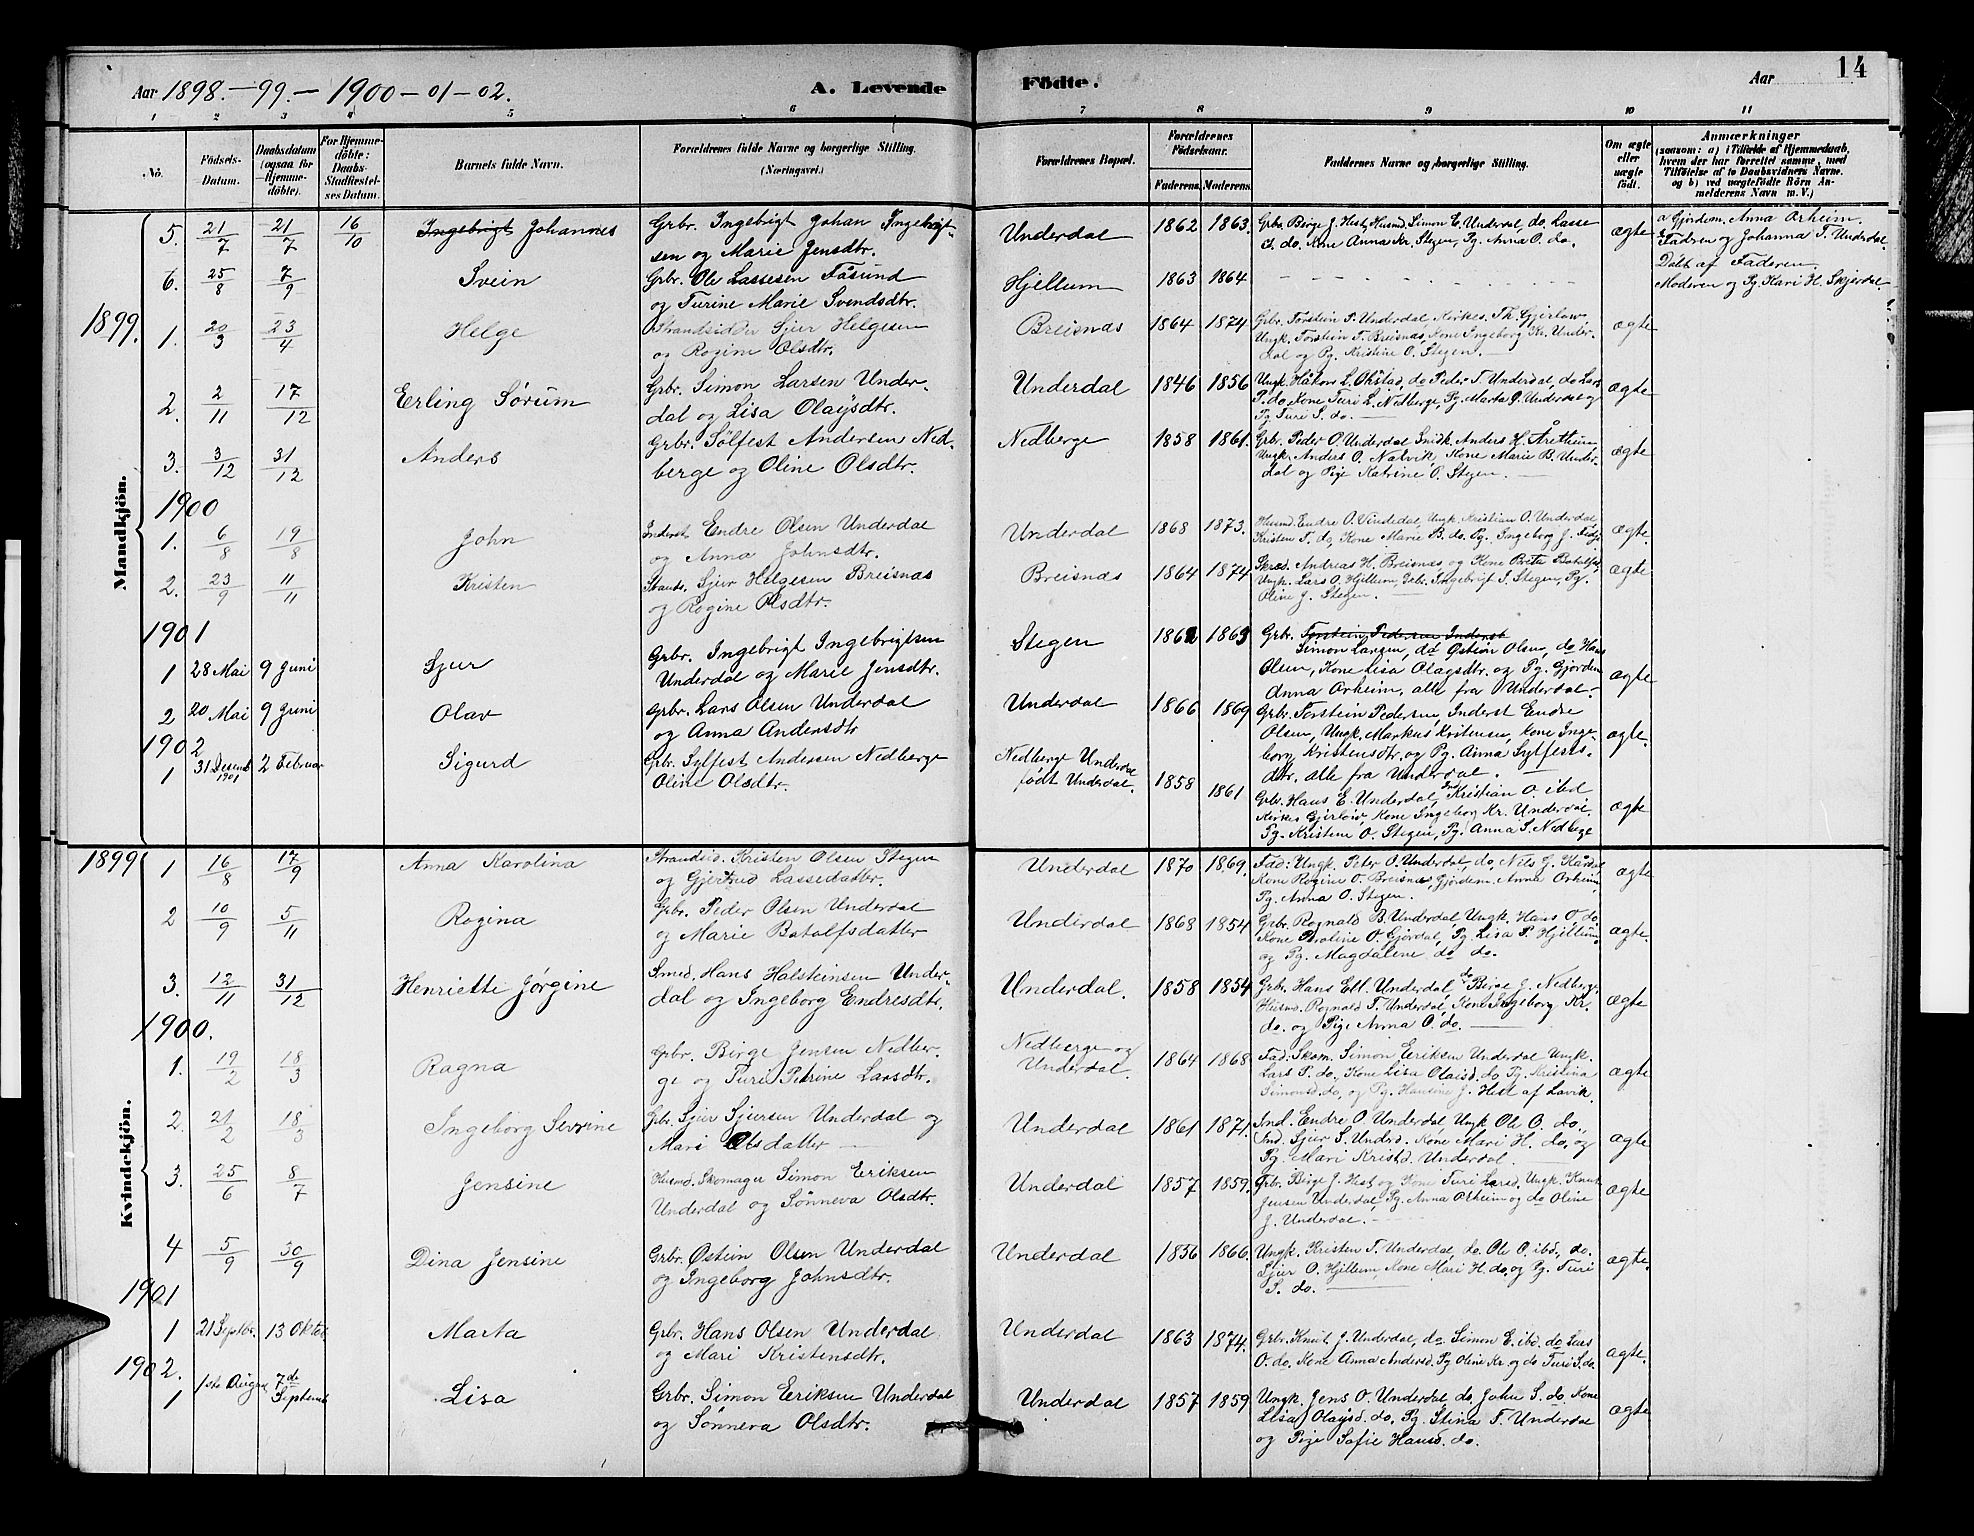 14
Aar 1898. - 99. - 1900 - 01 - 02. A. Levende Födte. Aar
1 2 3 4 5 6 7 8 9 10 11
No.
Födsels-Datum.
Daabsdatum (ogsaa for Hjemmedöbte).
For Hjemmedöbte: Daabs-Stadfæstelses Datum.
Barnets fulde Navn.
Forældrenes fulde Navne og borgerlige Stilling. (Næringsvei.)
Forældrenes Bopæl.
Forældrenes Födselsaar.
Faderens. Moderens.
Faddernes Navne og borgerlige Stilling.
Om ægte eller uægte födt.
Anmærkninger
(saasom: a) i Tilfælde af Hjemmedaab, hvem der har forrettet samme, med Tilföielse af to Daabsvidners Navne. og b) ved uægtefödte Börn Anmelderens Navn m. V.)
Mandkjön.
5. 21/7 21/7 16/10 Ingebrigt Johannes
Grbr. Ingebrigt Johan Ingebrigt-
sen og Marie Jensdtr.
Underdal 1862 1863.
Grbr. Birge J. Hest, Husmd. Simon E. Underdal, do. Lasse
S. do. Kone Anna Kr. Stegen, Pg. Anna O. do.
ægte
a Gjordem. Anna Orheim.
Fadren og Johanna T. Underdal.
6. 25/8 7/9 Svein
Grbr. Ole Lassesen Fåsund
og Turine Marie Svendsdtr.
Hjellum 1863 1864
Døbt af Faderen.
Moderen og Pg. Kari H. Skjerdal
1899.
1. 20/3 23/4 Helge
Strandsidder Sjur Helgesen
og Rogine Olsdtr.
Breisnæs 1864 1874
Grbr. Torstein P. Underdal, Kirkes. Th. Gjerløw
Ungk. Torstein T. Breisnæs, Kone Ingeborg Kr. Under-
dal og Pg. Kristine O. Stegen.
ægte
2. 2/11 17/12 Erling Sørum
Grbr. Simon Larsen Under-
dal og Lisa Olaysdtr.
Underdal 1846 1856
Ungk. Håkon L. Ohstad, do Peder T. Underdal, do Lars
P. do, Kone Turi L. Nedberge, Pg. Marta O. Underdal og
Pg Turi S. do.
ægte
3. 3/12 31/12 Anders
Grbr. Sølfest Andersen Ned-
berge og Oline Olsdtr.
Nedberge 1858 1861.
Grb. Peder O. Underdal Snidk. Anders H. Åretun
Ungk. Anders O. Natvik, Kone Marie B. Under-
dal og Pige Katrine O. Stegen.
ægte
1900
1. 6/8 19/8 John
Inderst. Endre Olsen Underdal
og Anna Johnsdtr.
Underdal 1868 1873.
Husmd. Endre O. Vindedal, Ungk. Kristian O. Underdal,
Kristen T. do, Kone Marie B. do. Pg. Ingeborg J.
ægte.
2. 23/9 11/11 Kristen
Strands. Sjur Helgesen Breisnæs
og Rogine Olsdtr.
Breisnæs 1864 1874
Skræd. Andreas H. Breisnæs og Kone Brita Botolfs.
Ungk. Lars O. Hjellum, Grbr. Ingebrigt I. Stegen, Pg.
Oline J. Stegen.
ægte
1901
1 28 Mai 9 Juni Sjur
Grbr. Ingebrigt Ingebrigtsen
Underdal og Marie Jensdtr.
Stegen 1862 1863
Grbr. Torstein Pedersen Inderst
Simon Larsen, do Østein Olsen, do Hans
Olsen, Kone Lisa Olaysdtr. og Pg. Gjordem
Anna Orheim, alle fra Underdal.
ægte
2 20 Mai 9 Juni Olav
Grbr. Lars Olsen Underdal
og Anna Andersdtr
Underdal 1866 1869
Grbr. Torstein Pedersen, Inderst Endre
Olsen, Ungk. Markus Kristensen, Kone Inge-
borg Kristensdtr. og Pg. Anna Sylfests-
dtr. alle fra Underdal.
ægte.
1902
1 31 Desemb 1901 2 Februar Sigurd
Gbr. Sylfest Andersen Nedberge
Oline Olsdtr.
Nedberge Underdal
født Underdal. 1858 1861
Grbr. Hans E. Underdal, Kristian O. ibd
Kirkes Gjerløw, Kone Ingeborg Kr. Underdal
Pg. Kristine O. Stegen, Pg. Anna S. Nedberge
ægte
Kvindekjön.
1899
1 16/8 17/9 Anna Karolina
Strandsid. Kristen Olsen Stegen
og Gjertrud Lassedatter.
Underdal 1870 1869.
Fad: Ungk. Peter O. Underdal, do, Nils J. Kårdal,
Kone Rogine O. Breisnæs, Gjordem. Anna Orheim
Pg. Anna O. Stegen.
ægte
2 10/9 5/11 Rogina
Grbr. Peder Olsen Underdal
og Marie Botolfsdatter
Underdal 1868 1854
Grbr. Rognald B. Underdal, Ungk. Hans O. do,
Kone Poroline O. Gjørdal, Pg. Lisa P. Hjellum,
og Pg. Magdalene do do.
ægte.
3. 12/11 31/12 Henriette Jørgine
Smed. Hans Halsteinsen Under-
dal og Ingeborg Endresdtr.
Underdal. 1858 1854
Grbr. Hans Ell. Underdal, do Birge J. Nedberg,
Husmd. Rognald T. Underdal, Kone Ingeborg Kr.
do. og Pige Anna O. do.
ægte
1900.
1. 19/2 18/3 Ragna
Grbr. Birge Jensen Nedber-
ge og Turi Petrine Larsdtr.
Nedberge og
Underdal. 1864 1868
Fad: Skom. Simon Eriksen Underdal Ungk.
Lars P. do, Kone Lisa Olaisd. do, Pg. Kristina
Simonsd. do, og Pg. Hansine J. Hest af Lavik.
ægte
2. 21/2 18/3 Ingeborg Severine
Grbr. Sjur Sjursen Underdal og
Mari Olsdatter
Underdal 1861 1871.
Ind. Endre O. Underdal, Ungk Ole O. do,
Ind. Sjur S. Underd. Kone Mari H. do, og
Pg. Mari Kristd. Underdal.
ægte
3. 25/6 8/7 Jensine
Husmd. Skomager Simon Eriksen
Underdal og Sønneva Olsdtr.
Underdal 1857 1859.
Grbr. Birge J. Hest og Kone Turi Larsd. Ungk. Knut
Jensen Underdal, Pg. Anna Orheim og do Oline
J. Underdal.
ægte
4 5/9 30/9 Dina Jensine
Grbr. Østein Olsen Underdal
og Ingeborg Johnsdtr.
Underdal 1856 1866.
Ungk. Kristen T. Underdal, do. Ole O. ibd., do.
Sjur O. Hjellum, Kone Mari H. do, og Pg. Turi
S. do.
ægte.
1901
1 21 Septbr. 13 Oktob Marta
Grbr. Hans Olsen Underdal.
og Mari Kristensdtr.
Underdal 1863 1874.
Grbr. Knut J. Underdal, do Simon E. ibd. do Lars
O. do. Kone Anna Andersd. Pg Oline Kr. og do Turi S. do.
ægte.
1902.
1 1ste August 7de Septemb Lisa
Grbr. Simon Eriksen Underdal
og Sønneva Olsdtr.
Underdal 1857 1859
Ungk. Jens O. Underdal, do, John S. do, Kone
Lisa Olaysd. do, Pg. Stina T. Underdal
og Pige Sofie Hansd. do.
ægte